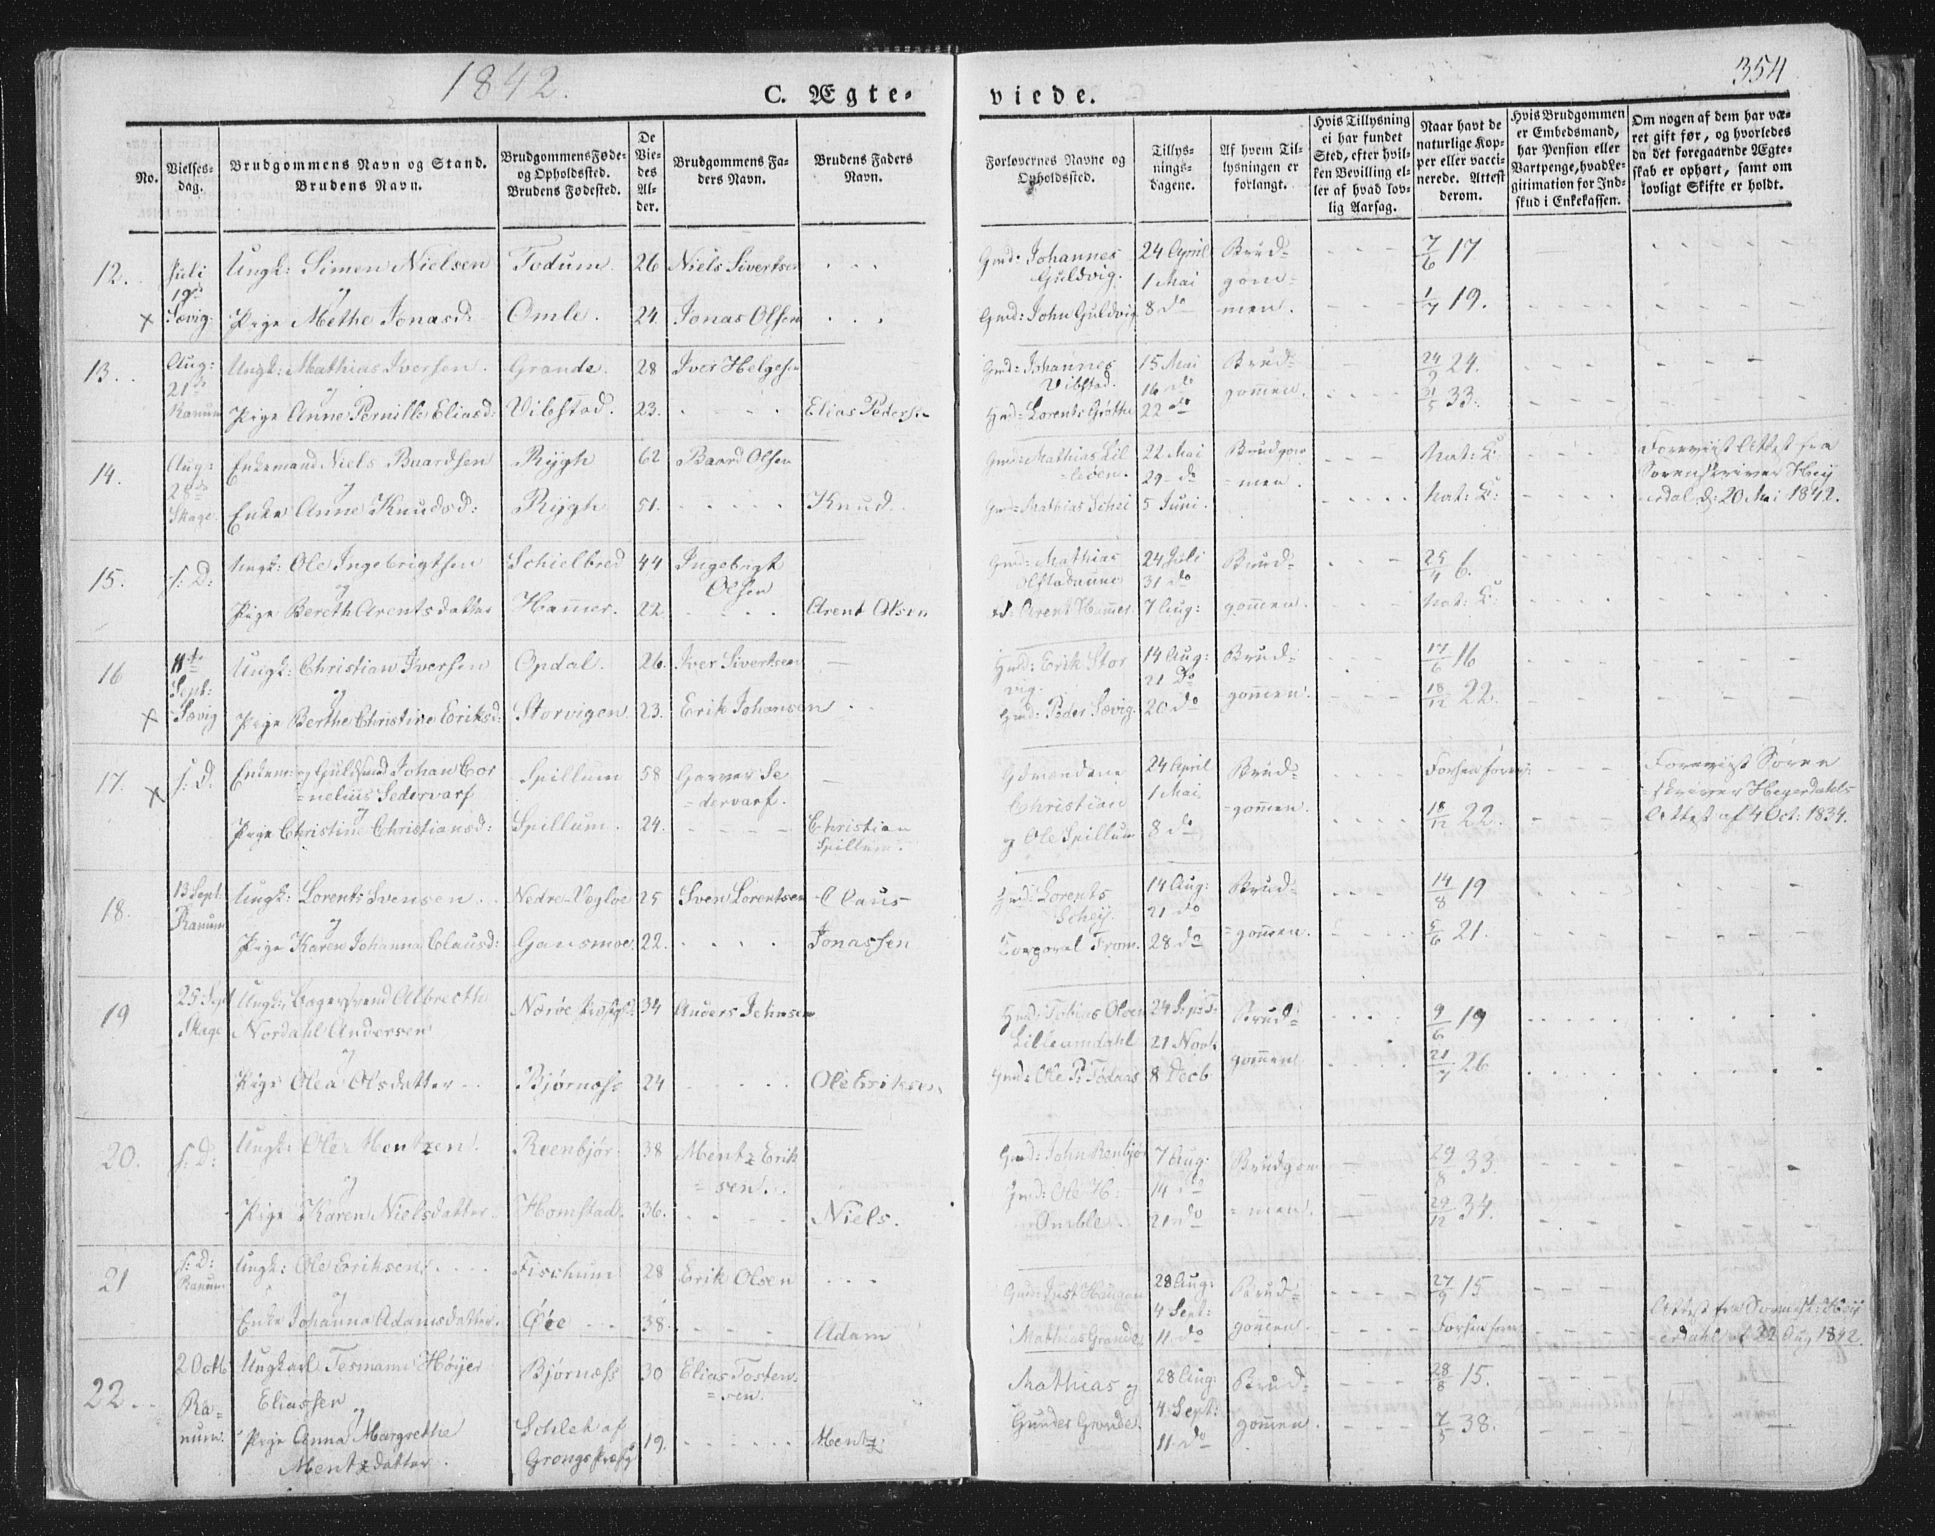 1842.
354
C. Ægteviede.
No.
Vielsesdag.
Brudgommens Navn og Stand. Brudens Navn.
Brudgommens Føde- og Opholdssted. Brudens Fødested.
De Viedes Alder.
Brudgommens Faders Navn.
Brudens Faders Navn.
Forlovernes Navne og Opholdssted.
Tillysningsdagene.
Af hvem Tillysningen er forlangt.
Hvis Tillysning ei har fundet Sted, efter hvilken Bevilling eller af hvad lovlig Aarsag.
Naar havt de naturlige Kopper eller vaccinerede. Attest derom.
Hvis Brudgommen er Embedsmand, har Pension eller Vartpenge, hvad Legitimation for Indskud i Enkekassen.
Om nogen af dem har været gift før, og hvorledes da det foregaaende Ægteskab er ophørt, samt om lovligt Skifte er holdt.
12. Juli Ungk: Simen Nielsen Fodum. 26 Niels Sivertsen Gmd: Johannes 24 April Brud= 7/6 17
19de og Guldvig. 1 Mai gom=
x Sævig. Pige Methe Jonasd: Omle. 24. Jonas Olsen Gmd: John Guldvig 8 do men. 1/7 19.
13. Aug: Ungk: Mathias Iversen. Grande. 28 Iver Helgesen Gmd: Johannes 15 Mai Brud= 24/9 24.
21de og Vibstad. 16 do gommen.
Ranum Pige Anne Pernille Eliasd: Vibstad. 23. Elias Peders Gmd: Lorents Grøthe 22 do 21/5 33.
14. Aug: Enkemand Niels Baardsen Rygh 62 Baard Olsen Gmd: Mathias Lil 22 Mai Brudgom Nat: K: Foreviist Attest fra
28de og =leøen. 29 do =men. Sorenskriver Heÿ
Skage. Enke Anne Knudsd: Rygh 51. Knud. Gmd: Mathias Schei 5 Juni. Nat: K: erdal d: 20 Mai 1842.
15. s: D: Ungk: Ole Ingebrigtsen Schielbred 44 Ingebrigt Gmd: Mathias 24 Juli Brud= 25/4 6.
og Olsen 31 do
Pige Bereth Arentsdatter Hammer. 22. Arent Olsen Arent Hammer. 7 Aug: gommen. Nat: K:
16 11te Ungk: Christian Iversen Opdal. 26. Iver Sivertsen Gmd: Erik Stor 14 Aug: Brud= 17/6 16
Sept: og vig. 21 Do
x Sævig Pige Berthe Christine Eriksd: Storvigen. 23. Erik Johansen Gmd: Peder Sævig. 20 do gommen. 18/12 22.
17. x s: D. Enkem: og Guldsmd Johan Cor Spillum 58 Garver Se Gdmændene 24 April Brud= Foreviist Søren
=nelius Sedervarf =dervarf. Christian 1 Mai =gommen. =skriver Heyerdahls
Pige Christine Christiansd: Spillum. 24. Christian og Ole Spillum 8 do 18/12 22. Attest af 4 Oct: 1834.
Spillum.
18. 13 Sept: Ungk: Lorents Svensen Nedre-Vogløe 25 Sven Lorentsen Claus Gmd: Lorents 14 Aug: Brud= 14/8 19
Ranum og Scheÿ. 21 do
Pige Karen Johanna Clausd: Gansmoe. 22. Jonassen Corporal From. 28 do =gommen. 5/6 21.
19 25 Sept Ungk: Albrecth Nærøe 34 Anders Johnsen Gmd: Tobias Olsen 24 Sept: Brud= 9/6 19
Skage Nordahl Andersen Lilleamdahl 21 Novb gommen.
og
Pige Olea Olsdatter Bjørness 24 Ole Eriksen Gmd: Ole P: 8 Decb 21/7 26
20. s: D: Ungk: Ole Mentzen. Reenbjør. 38 Mentz Erik Gmd: John Renbjør 7 Aug: Brudgom 29/8 33.
og =sen. Gmd: Ole H: 14 do
Pige Karen Nielsdatter. Homstad. 36. Niels. Amble. 21 do =men. 29/12 34.
21 s: D: Ungk: Ole Eriksen Fischum 28 Erik Olsen Gmd: Just Haugan 28 Aug: Brud= 27/9 15
Ranum og 4 Sept: Attest fra Sorenskr: Heÿ
Enke Johanna Adamsdatter. Øie 38. Adam Mathias Grande, 11 do gommen. erdahl af 22 Aug 1842.
22. 2 Octb Ungkarl Tesmann Høÿer Bjørness 30 Elias Tosten Mathias og 28 Aug: Brud= 28/8 15.
Ra= Eliassen =sen. 4 Sept:
num. og Gunder Grande. gommen. 7/5 38.
Pige Anna Margrethe Schlet af 19. Mentz 11 do
Mentzdatter. Grongs